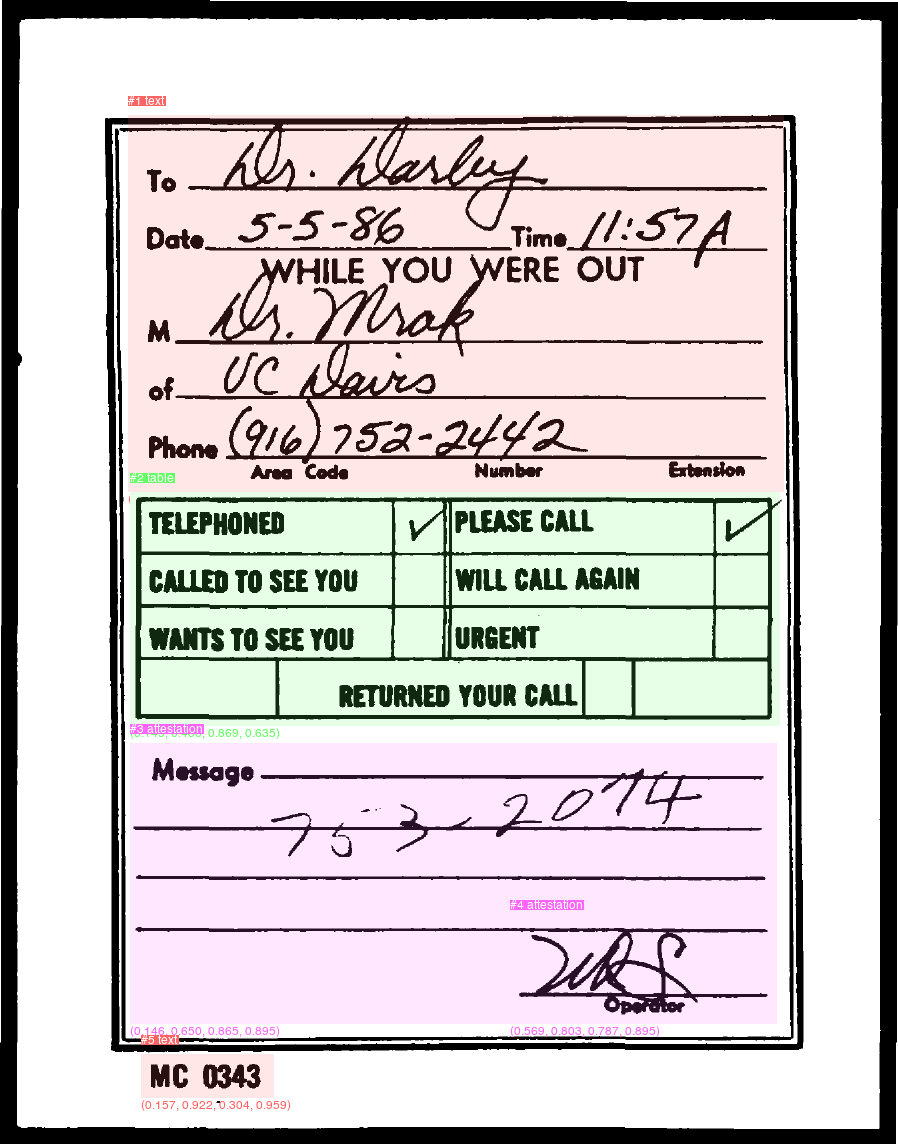 #1 text
To Dr. Darby
Date 5-5-86 Time 11:57A
WHILE YOU WERE OUT
M Dr. Mrak
of UC Davis
Phone (916) 752-2442
Area Code Number Extension
#2 table
TELEPHONED ✓ PLEASE CALL ✓
CALLED TO SEE YOU WILL CALL AGAIN
WANTS TO SEE YOU URGENT
RETURNED YOUR CALL
#3 attestation
0.869, 0.635)
Message
753-2074
#4 attestation
Operator
(0.146, 0.650, 0.865, 0.895) (0.569, 0.803, 0.787, 0.895)
#5 text
MC 0343
(0.157, 0.922, 0.304, 0.959)